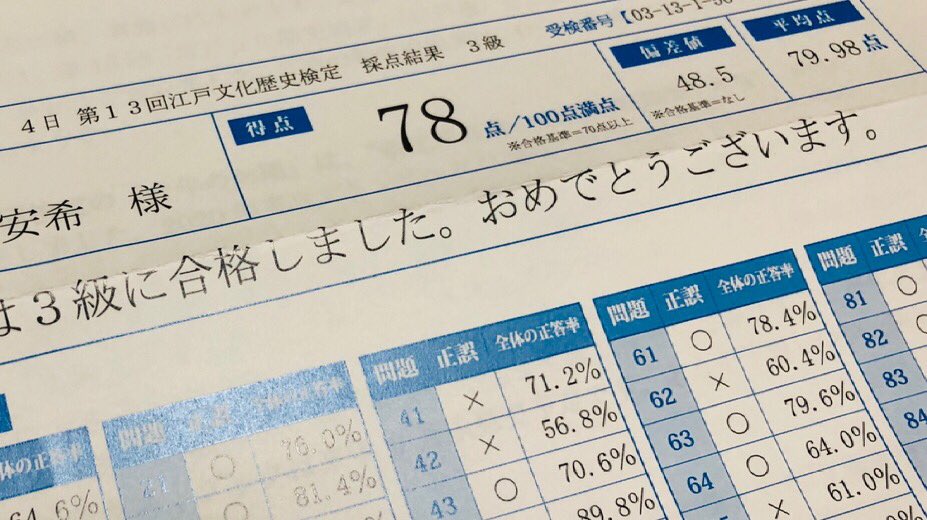 4日 第13回江戸文化歴史検定 採点結果 3級
受検番号【03-13-1-
安希 様
得点
78点/100点満点
※合格基準=70点以上
偏差値
48.5
※合格基準=なし
平均点
79.98点
は3級に合格しました。おめでとうございます。
体の正答率
4.6%
問題 正誤 全体の正答率
21 ○ 76.0%
○ 81.4%
問題 正誤 全体の正答率
41 × 71.2%
42 × 56.8%
43 ○ 70.6%
89.8%
問題 正誤 全体の正答率
61 ○ 78.4%
62 × 60.4%
63 ○ 79.6%
64 ○ 64.0%
× 61.0%
問題 正誤
81 ○
82
83
84